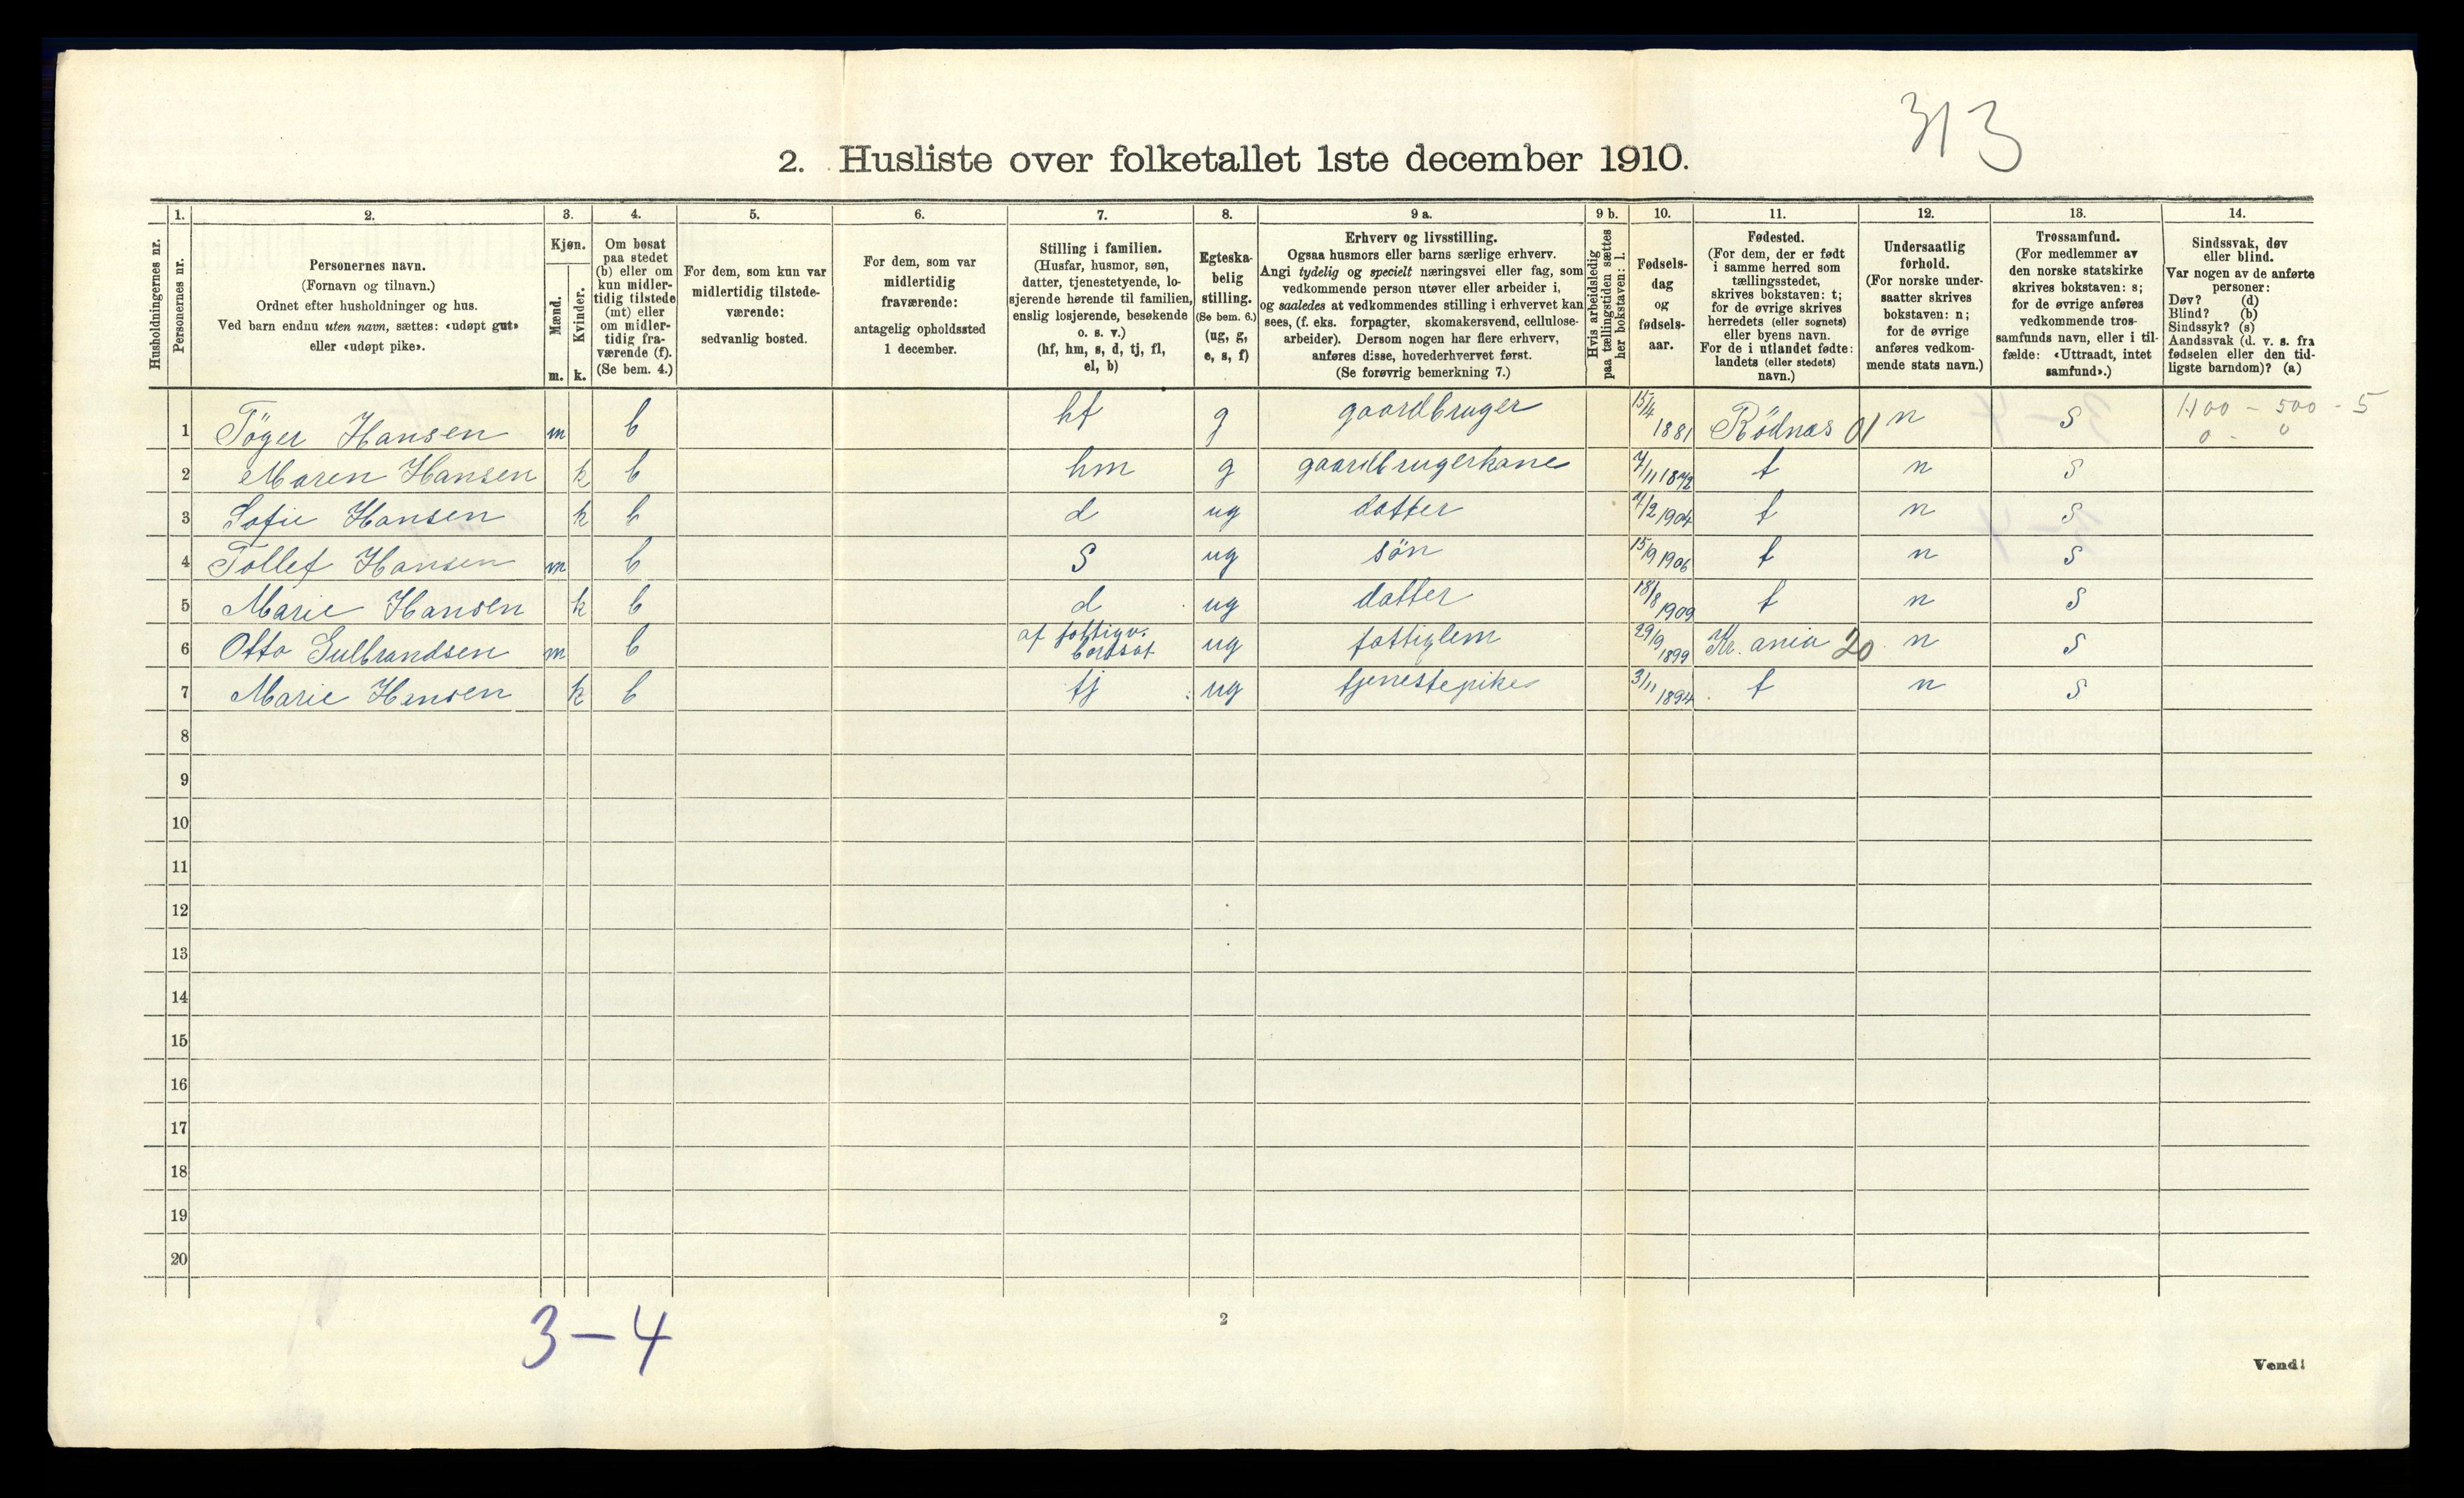 313
2. Husliste over folketallet 1ste december 1910.
1. 2. 3. 4. 5. 6. 7. 8. 9 a. 9 b. 10. 11. 12. 13. 14.
Husholdningernes nr.
Personernes nr.
Personernes navn.
(Fornavn og tilnavn.)
Ordnet efter husholdninger og hus.
Ved barn endnu uten navn, sættes: «udøpt gut»
eller «udøpt pike».
Kjøn.
Mænd.
Kvinder.
m. k.
Om bosat
paa stedet
(b) eller om
kun midler-
tidig tilstede
(mt) eller
om midler-
tidig fra-
værende (f).
(Se bem. 4.)
For dem, som kun var
midlertidig tilstede-
værende:
sedvanlig bosted.
For dem, som var
midlertidig
fraværende:
antagelig opholdssted
1 december.
Stilling i familien.
(Husfar, husmor, søn,
datter, tjenestetyende, lo-
sjerende hørende til familien,
enslig losjerende, besøkende
o. s. v.)
(hf, hm, s, d, tj, fl,
el, b)
Egteska-
belig
stilling.
(Se bem. 6.)
(ug, g,
e, s, f)
Erhverv og livsstilling.
Ogsaa husmors eller barns særlige erhverv.
Angi tydelig og specielt næringsvei eller fag, som
vedkommende person utøver eller arbeider i,
og saaledes at vedkommendes stilling i erhvervet kan
sees, (f. eks. forpagter, skomakersvend, cellulose-
arbeider). Dersom nogen har flere erhverv,
anføres disse, hovederhvervet først.
(Se forøvrig bemerkning 7.)
Hvis arbeidsledig
paa tællingstiden sættes
her bokstaven: l.
Fødsels-
dag
og
fødsels-
aar.
Fødested.
(For dem, der er født
i samme herred som
tællingsstedet,
skrives bokstaven: t;
for de øvrige skrives
herredets (eller sognets)
eller byens navn.
For de i utlandet fødte:
landets (eller stedets)
navn.)
Undersaatlig
forhold.
(For norske under-
saatter skrives
bokstaven: n;
for de øvrige
anføres vedkom-
mende stats navn.)
Trossamfund.
(For medlemmer av
den norske statskirke
skrives bokstaven: s;
for de øvrige anføres
vedkommende tros-
samfunds navn, eller i til-
fælde: «Uttraadt, intet
samfund».)
Sindssvak, døv
eller blind.
Var nogen av de anførte
personer:
Døv? (d)
Blind? (b)
Sindssyk? (s)
Aandssvak (d. v. s. fra
fødselen eller den tid-
ligste barndom)? (a)
1 Töger Hansen m b hf g gaardbruger 15/4 1881 Rödnæs 01 n s 1100 - 500 - 5
0 - 0
2 Maren Hansen k b hm g gaardbrugerkone 7/11 1872 t n s
3 Sofie Hansen k b d ug datter 7/2 1904 t n s
4 Tollef Hansen m b S ug sön 15/9 1906 t n s
5 Marie Hansen k b d ug datter 18/8 1909 t n s
6 Otto Gulbrandsen m b af fattigv. bortsat ug fattiglem 29/9 1899 Kr. ania 20 n s
7 Marie Hensen k b tj ug tjenestepike 3/11 1894 t n s
8
9
10
11
12
13
14
15
16
17
18
19
20
3-4
2
Vend!